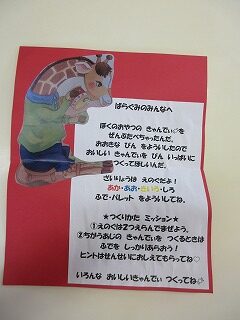 ばらぐみのみんなへ
ぼくのおやつの きゃんでぃ♡を
ぜんぶたべちゃったんだ。
おおきな びん をよういしたので
おいしい きゃんでぃを びん いっぱいに
つくってほしいんだ。
ざいりょうは えのぐだよ！
あか・あお・きいろ・しろ
ふで・パレット をよういしてね。
★つくりかた ミッション★
①えのぐは2つえらんでまぜよう。
②ちがうあじの きゃんでぃを つくるときは
ふでを しっかりあらおう！
ヒントはせんせいにおしえてもらってね♡
いろんな おいしいきゃんでぃ つくってね♡